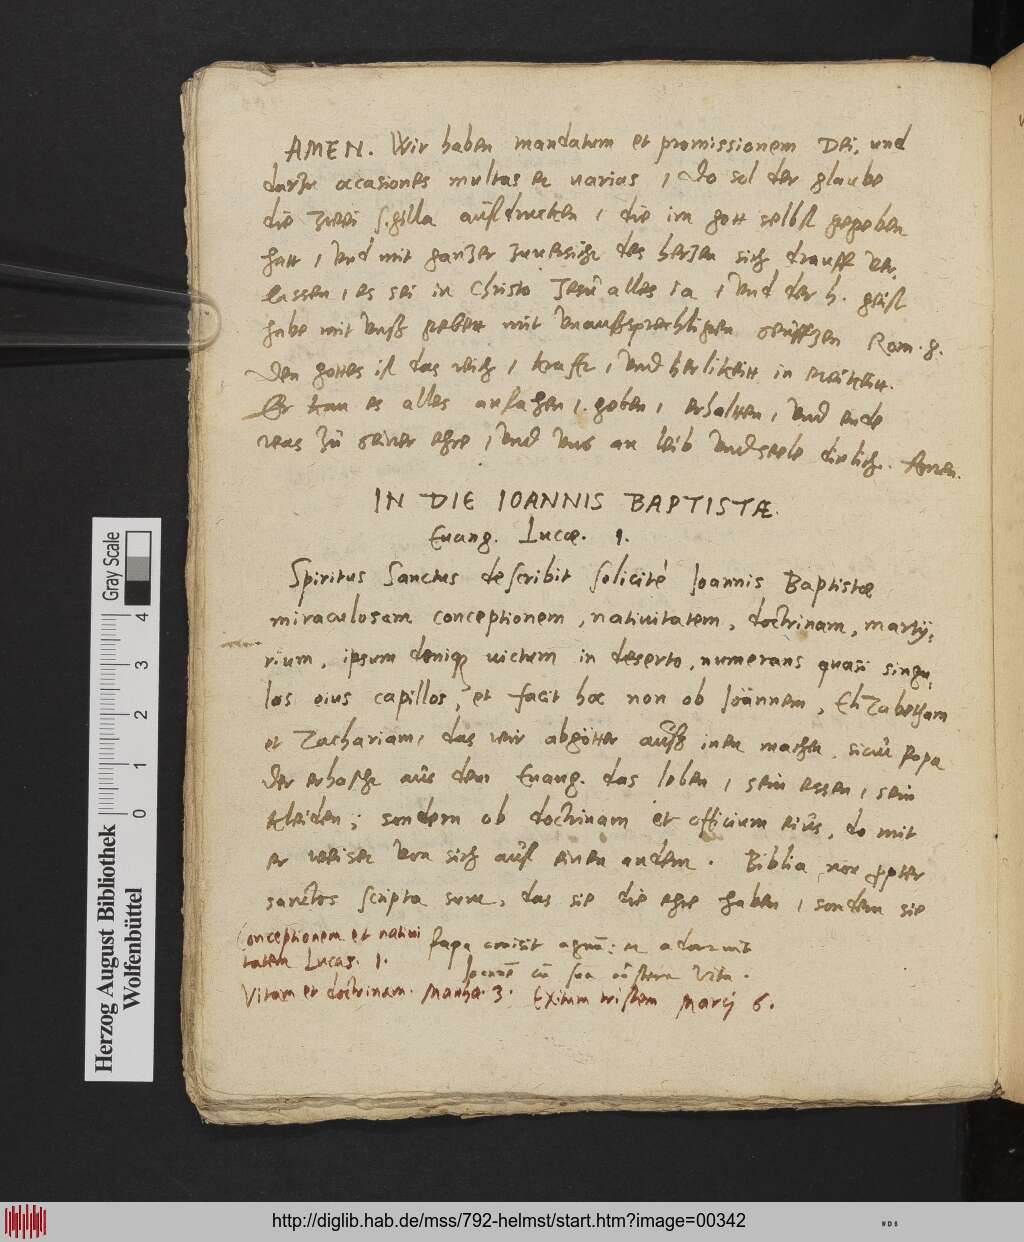 AMEN. Wir haben mandatum et promissionem Dei, und
darzu occasiones multas et varias, do sol der glaube
die zwei sigilla aufdrucken, die im gott selbst gegeben
hatt, und mit ganzer zuversicht des herzen sich drauff ver,
lassen, es sei in Christo Jesu alles ia, und der h. geist
habe mit unss gebett mit unaussprechlichen seufftzen Rom. 8.
Den gottes ist das reich, krafft, und herlikeitt in ewikeitt.
Er kan es alles anfahen, geben, erhaltten, und ende
was zu seiner ehre, und uns an leib und seele dinlich. Amen.
IN DIE IOANNIS BAPTISTÆ.
Euang. Lucæ. 1.
Spiritus Sanctus describit solicitè Ioannis Baptistæ
miraculosam conceptionem, nativitatem, doctrinam, marty,
rium, ipsum deniq victum in deserto, numerans quasi singu,
los eius capillos, et facit hoc non ob Ioannem, Elizabetham
et Zachariam, das wir abgötter auss inen machen, sicut papa
der erhascht aus dem Euang. das leben, sein essen, sein
kleiden; sondern ob doctrinam et officium eius, do mit
er weiset von sich auf einen andern. Biblia non propter
sanctos scripta sunt, das sie die ehre haben, sondern sie
Conceptionem et nativi
tatem Lucas. 1.
papa omisit agnū: et adoravit
Ioannē cū sua austera vita.
Vitam et doctrinam. Matthæ. 3. Exitum tristem Marci 6.
Herzog August Bibliothek
Wolfenbüttel
Gray Scale
0 1 2 3 4
http://diglib.hab.de/mss/792-helmst/start.htm?image=00342